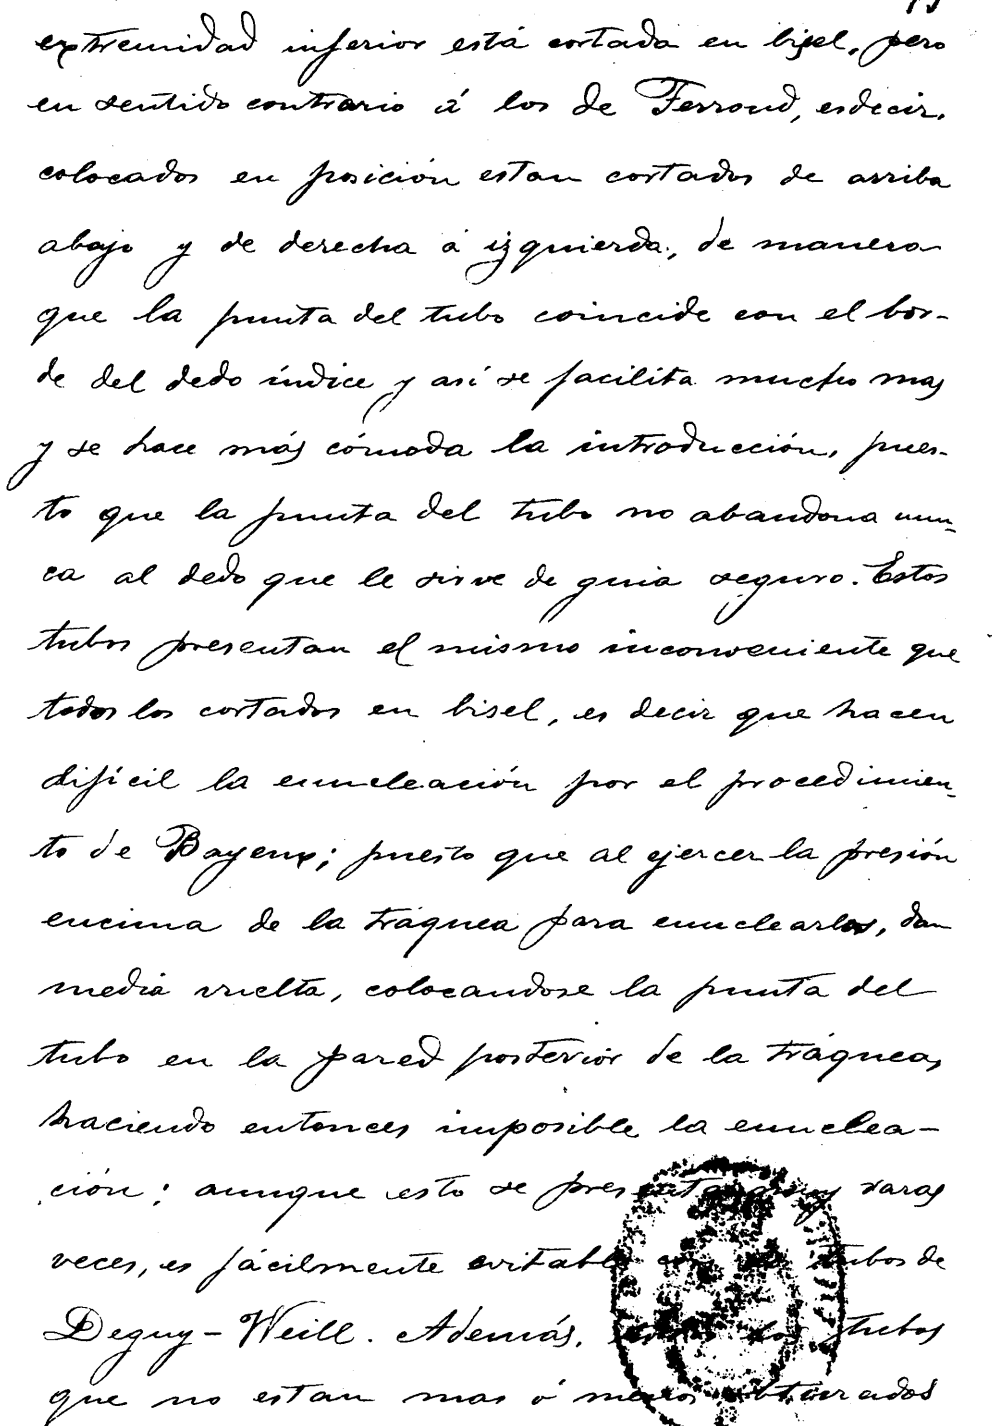 extremidad inferior está cortada en bisel, pero
en sentido contrario á los de Ferroud, es decir,
colocados en posición estan cortados de arriba
abajo y de derecha á izquierda, de manera
que la punta del tubo coincide con el bor-
de del dedo índice y así se facilita mucho mas
y se hace más cómoda la introducción, pues-
to que la punta del tubo no abandona nun-
ca al dedo que le sirve de guia seguro. Estos
tubos presentan el mismo inconveniente que
todos los cortados en bisel, es decir que hacen
difícil la enucleación por el procedimien-
to de Bayeux; puesto que al ejercer la presión
encima de la tráquea para enuclearlos, dan
media vuelta, colocandose la punta del
tubo en la pared posterior de la tráquea,
haciendo entonces imposible la enuclea-
ción; aunque esto se presenta muy raras
veces, es fácilmente evitable con los tubos de
Deguy-Weill. Además, los tubos
que no estan mas ó menos obturados